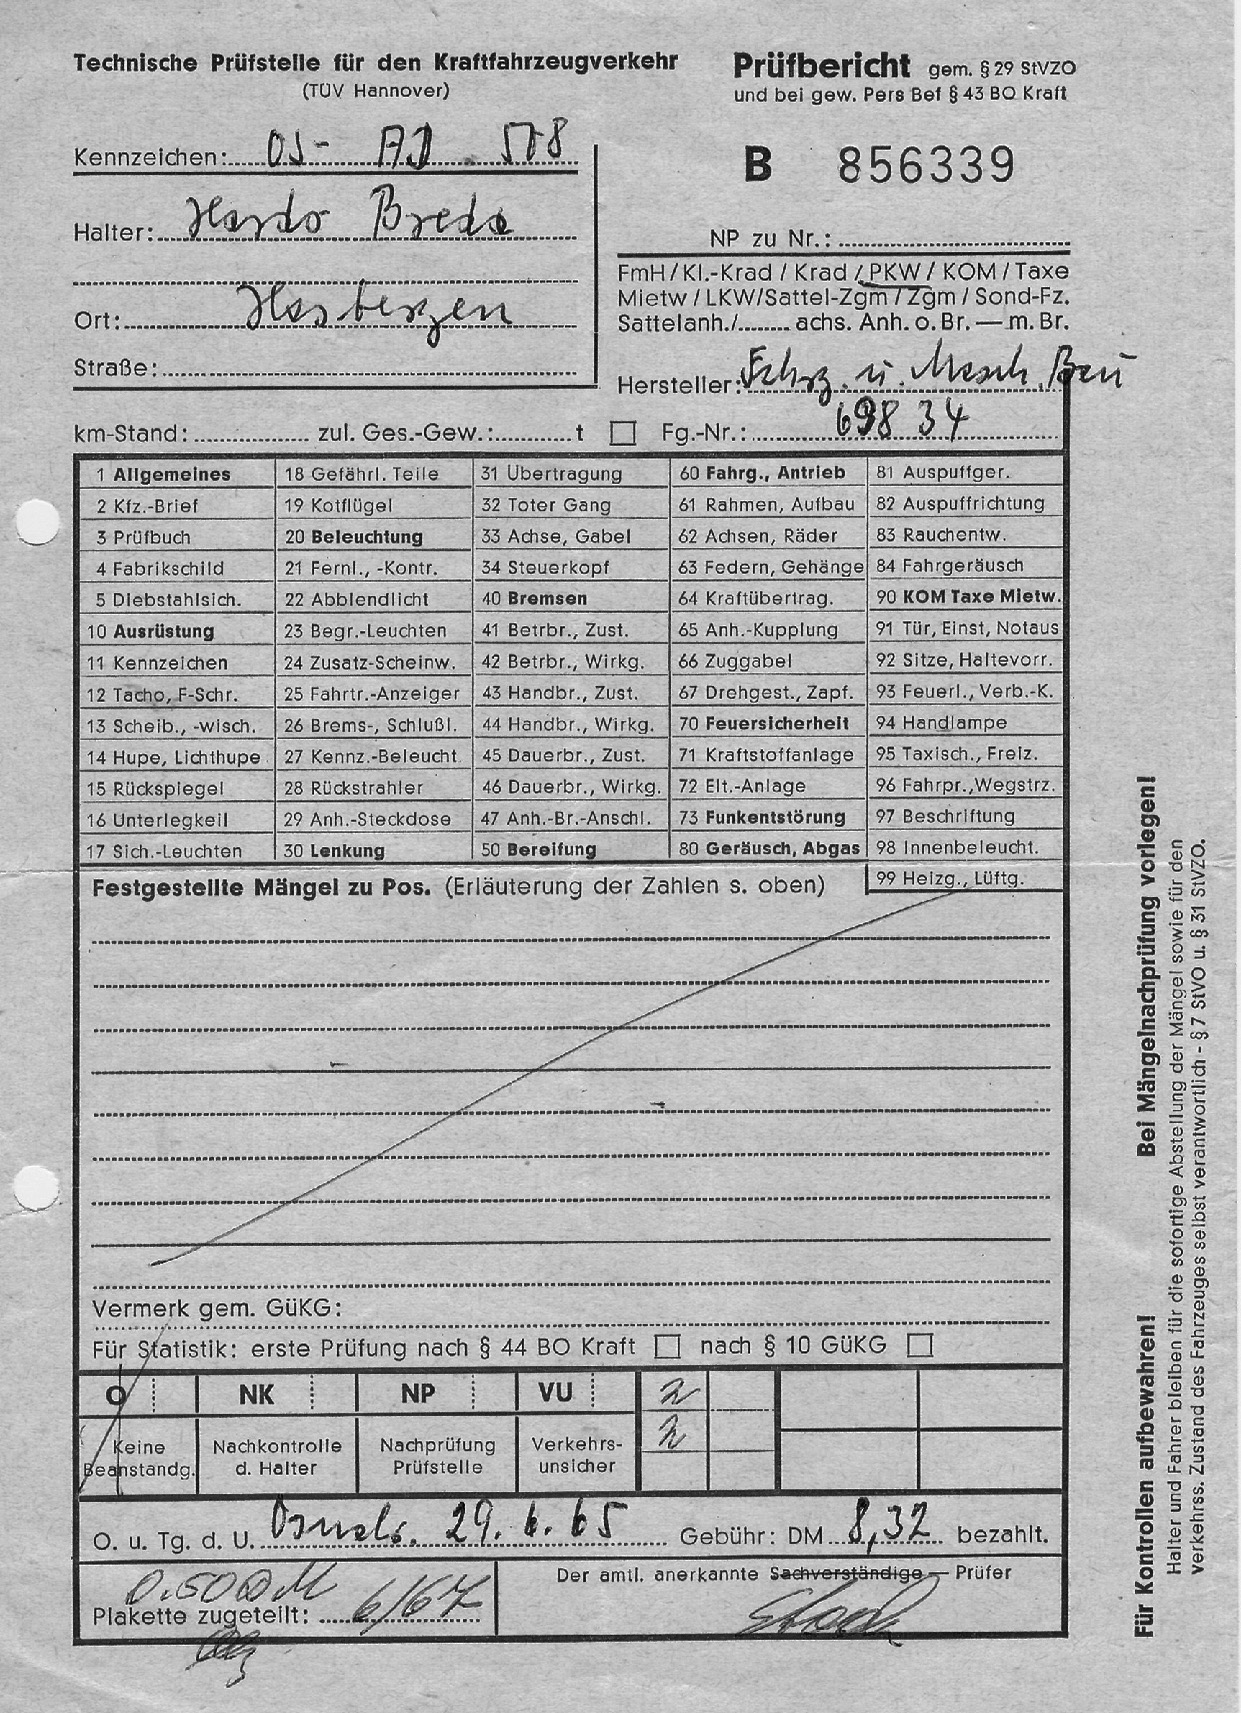 Technische Prüfstelle für den Kraftfahrzeugverkehr
(TÜV Hannover)
Prüfbericht gem. § 29 StVZO
und bei gew. Pers Bef § 43 BO Kraft
Kennzeichen: OS- AD 578
B 856339
Halter: Hardo Brede
NP zu Nr.:
FmH / Kl.-Krad / Krad / PKW / KOM / Taxe
Mietw / LKW/Sattel-Zgm / Zgm / Sond-Fz.
Sattelanh./........ achs. Anh. o. Br. — m. Br.
Ort: Hasbergen
Straße:
Hersteller: Fahrz. u. Masch. Bau
km-Stand: zul. Ges.-Gew.: t Fg.-Nr.: 69834
1 Allgemeines
2 Kfz.-Brief
3 Prüfbuch
4 Fabrikschild
5 Diebstahlsich.
10 Ausrüstung
11 Kennzeichen
12 Tacho, F-Schr.
13 Scheib., -wisch.
14 Hupe, Lichthupe
15 Rückspiegel
16 Unterlegkeil
17 Sich.-Leuchten
18 Gefährl. Teile
19 Kotflügel
20 Beleuchtung
21 Fernl., -Kontr.
22 Abblendlicht
23 Begr.-Leuchten
24 Zusatz-Scheinw.
25 Fahrtr.-Anzeiger
26 Brems-, Schlußl.
27 Kennz.-Beleucht.
28 Rückstrahler
29 Anh.-Steckdose
30 Lenkung
31 Übertragung
32 Toter Gang
33 Achse, Gabel
34 Steuerkopf
40 Bremsen
41 Betrbr., Zust.
42 Betrbr., Wirkg.
43 Handbr., Zust.
44 Handbr., Wirkg.
45 Dauerbr., Zust.
46 Dauerbr., Wirkg.
47 Anh.-Br.-Anschl.
50 Bereifung
60 Fahrg., Antrieb
61 Rahmen, Aufbau
62 Achsen, Räder
63 Federn, Gehänge
64 Kraftübertrag.
65 Anh.-Kupplung
66 Zuggabel
67 Drehgest., Zapf.
70 Feuersicherheit
71 Kraftstoffanlage
72 Elt.-Anlage
73 Funkentstörung
80 Geräusch, Abgas
81 Auspuffger.
82 Auspuffrichtung
83 Rauchentw.
84 Fahrgeräusch
90 KOM Taxe Mietw.
91 Tür, Einst, Notaus
92 Sitze, Haltevorr.
93 Feuerl., Verb.-K.
94 Handlampe
95 Taxisch., Freiz.
96 Fahrpr., Wegstrz.
97 Beschriftung
98 Innenbeleucht.
99 Heizg., Lüftg.
Festgestellte Mängel zu Pos. (Erläuterung der Zahlen s. oben)
Vermerk gem. GüKG:
Für Statistik: erste Prüfung nach § 44 BO Kraft nach § 10 GüKG
O NK NP VU 2
2
Keine Beanstandg.
Nachkontrolle d. Halter
Nachprüfung Prüfstelle
Verkehrs-unsicher
O. u. Tg. d. U. Osnabr. 29. 6. 65 Gebühr: DM 8,32 bezahlt.
0.50 DM
Plakette zugeteilt: 6/67
Der amtl. anerkannte Sachverständige — Prüfer
Für Kontrollen aufbewahren! Bei Mängelnachprüfung vorlegen!
Halter und Fahrer bleiben für die sofortige Abstellung der Mängel sowie für den
verkehrss. Zustand des Fahrzeuges selbst verantwortlich - § 7 StVO u. § 31 StVZO.